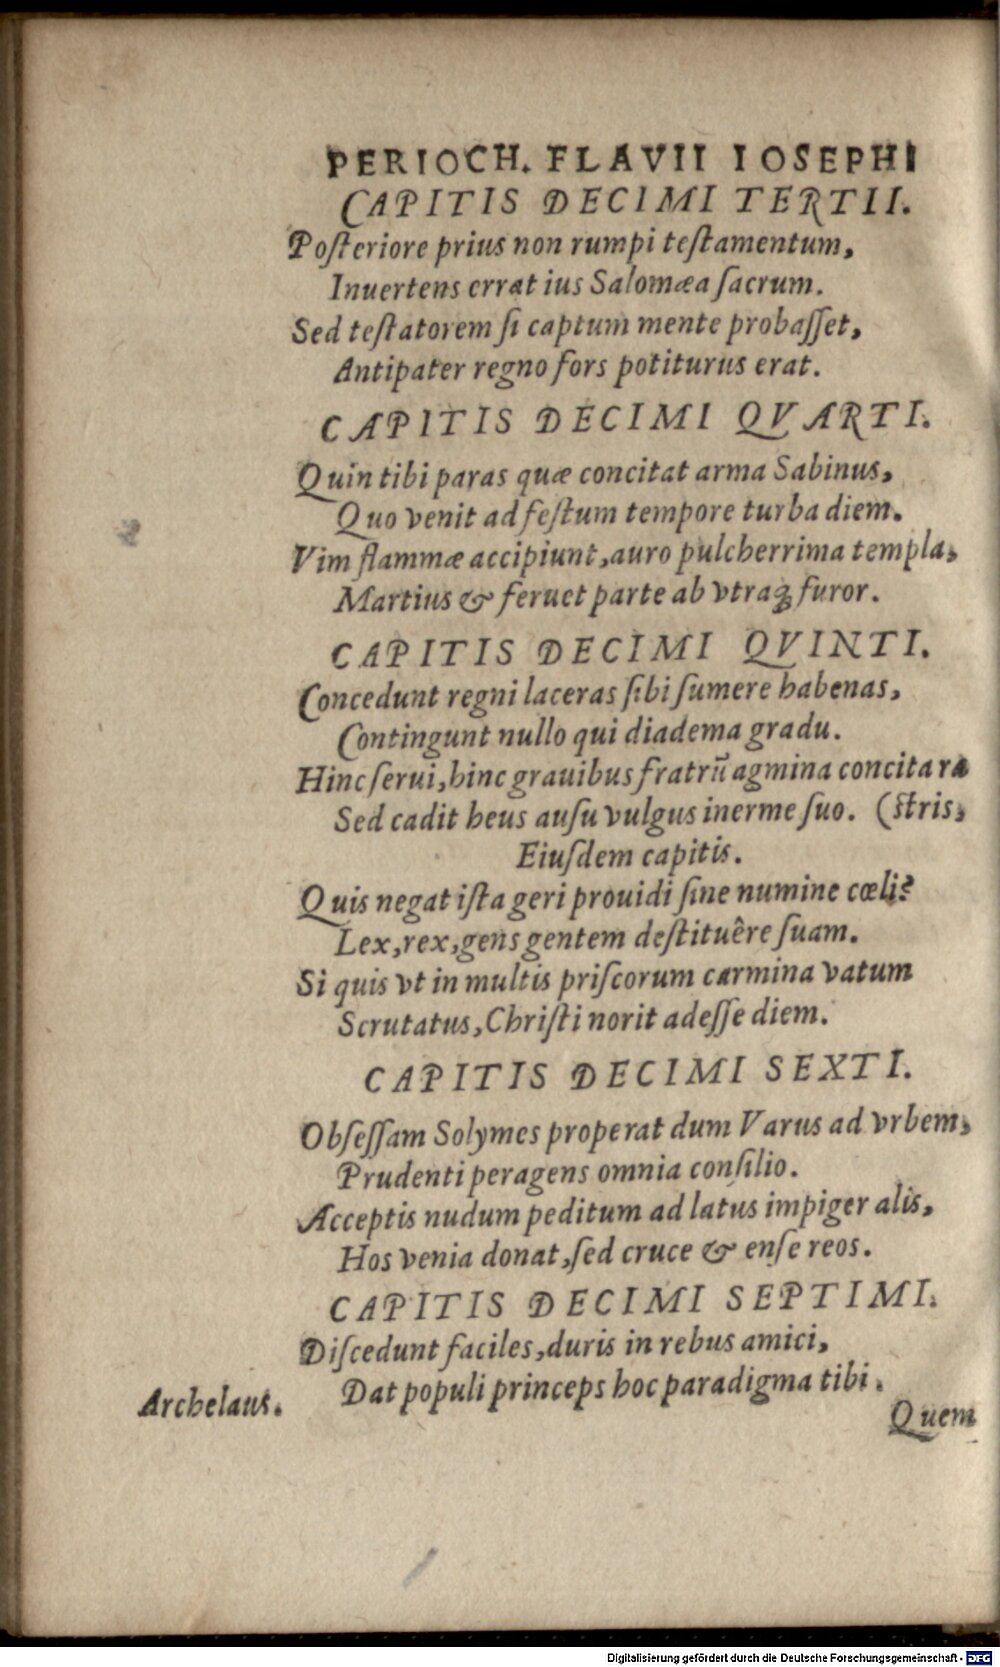 PERIOCH. FLAVII IOSEPHI
CAPITIS DECIMI TERTII.
Poſteriore prius non rumpi teſtamentum,
Inuertens errat ius Salomæa ſacrum.
Sed teſtatorem ſi captum mente probaſſet,
Antipater regno fors potiturus erat.
CAPITIS DECIMI QVARTI.
Quin tibi paras quæ concitat arma Sabinus,
Quo venit ad feſtum tempore turba diem.
Vim flammæ accipiunt, auro pulcherrima templa,
Martius & feruet parte ab vtraqȝ furor.
CAPITIS DECIMI QVINTI.
Concedunt regni laceras ſibi ſumere habenas,
Contingunt nullo qui diadema gradu.
Hinc ſerui, hinc grauibus fratrũ agmina concita ra
Sed cadit heus auſu vulgus inerme ſuo. (ſtris,
Eiuſdem capitis.
Quis negat iſta geri prouidi ſine numine cœli?
Lex, rex, gens gentem deſtituêre ſuam.
Si quis vt in multis priſcorum carmina vatum
Scrutatus, Chriſti norit adeſſe diem.
CAPITIS DECIMI SEXTI.
Obſeſſam Solymes properat dum Varus ad vrbem,
Prudenti peragens omnia conſilio.
Acceptis nudum peditum ad latus impiger alis,
Hos venia donat, ſed cruce & enſe reos.
CAPITIS DECIMI SEPTIMI.
Diſcedunt faciles, duris in rebus amici,
Archelaus. Dat populi princeps hoc paradigma tibi.
Quem
Digitalisierung gefördert durch die Deutsche Forschungsgemeinschaft - DFG